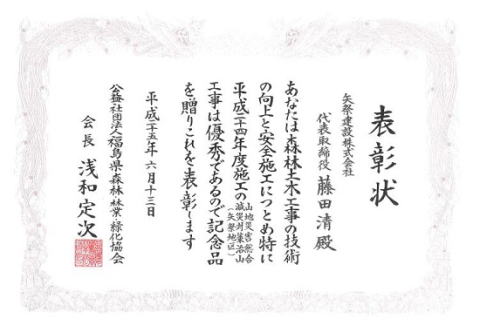 表彰状
矢祭建設株式会社
代表取締役 藤田清殿
あなたは森林土木工事の技術
の向上と安全施工につとめ特に
平成二十四年度施工の山地災害総合
減災対策治山
(矢祭地区)
工事は優秀であるので記念品
を贈りこれを表彰します
平成二十五年六月十三日
公益社団法人福島県森林・林業・緑化協会
会長 浅和定次